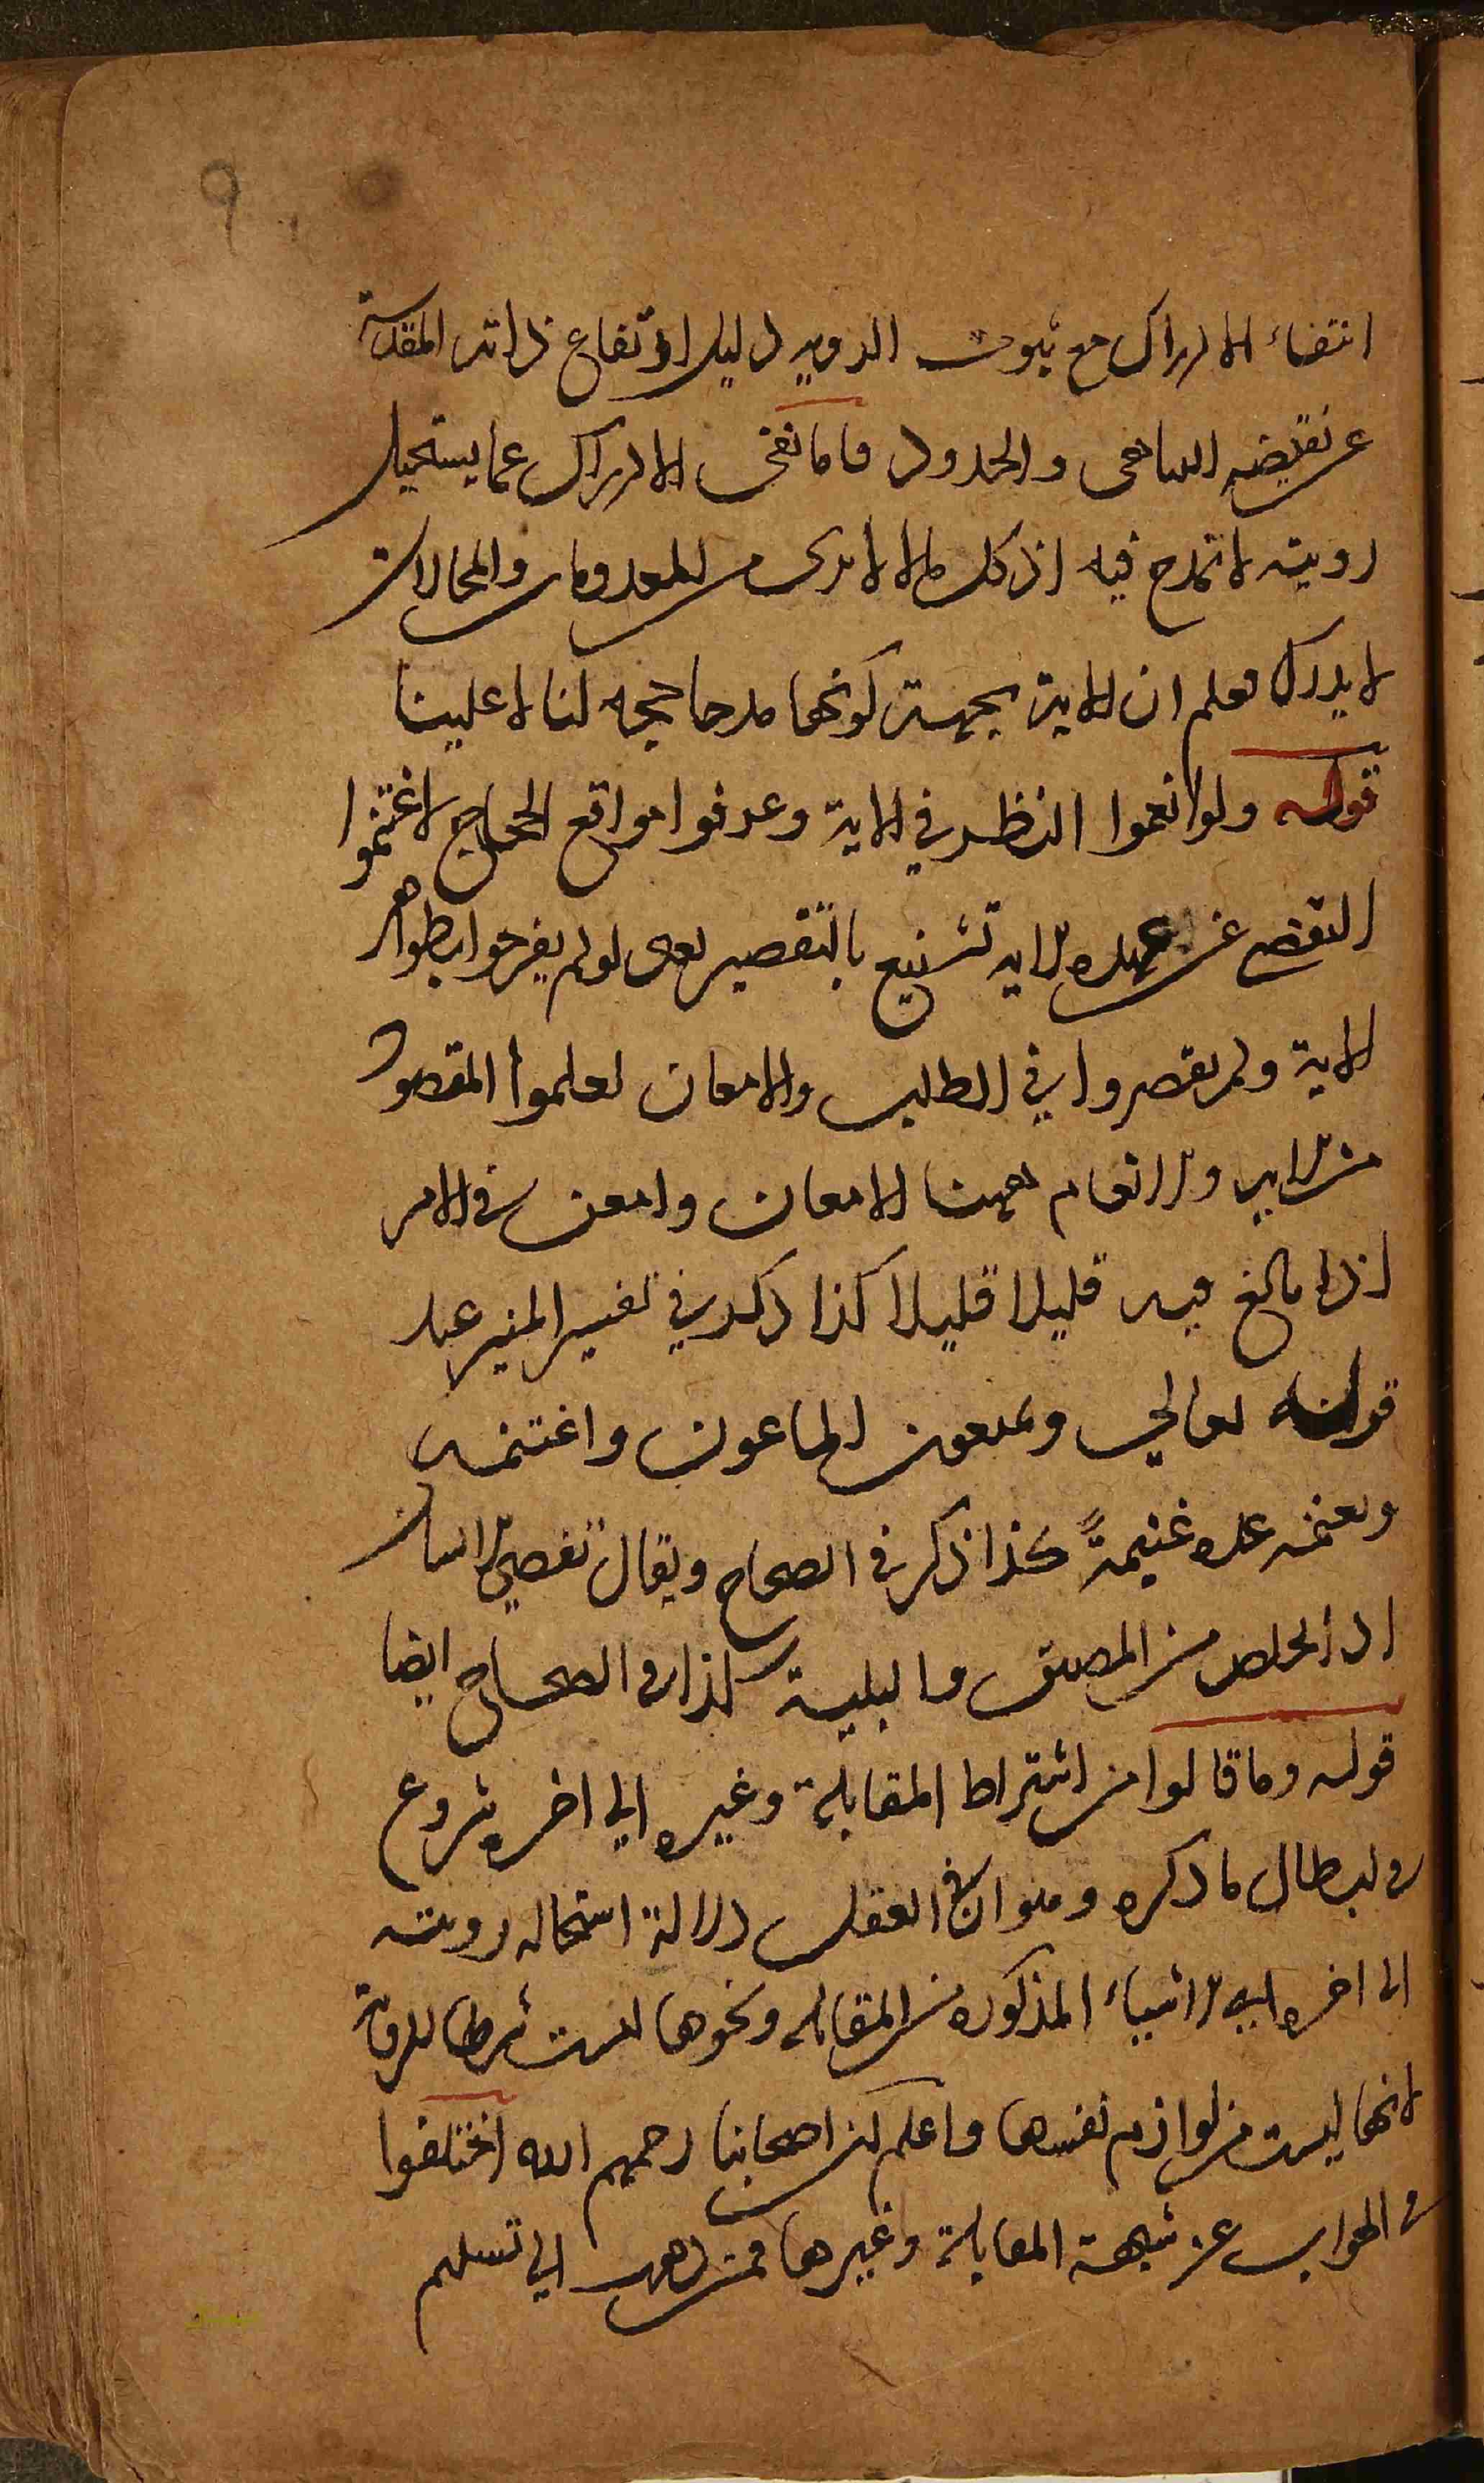 ٩
انتفاء الادراك مع ثبوت الرويه دليل ارتفاع ذاته المقدسة
عن نقيضه التناهى والحدود فاما نفى الادراك عما يستحيل
رويته لا تمدح فيه اذ كل ما لا يرى من المعدومات والمحالات
لا يدرك فعلم ان الاية بجهة كونها مدحا حجه لنا لا علينا
قوله ولو انعموا النظر في الاية وعرفوا مواقع الحجاج لاغتنموا
التفصى عن عهده الايه تشنيع بالتقصير يعنى لو لم يفرحوا بظواهر
الاية ولم يقصروا في الطلب والامعان لعلموا المقصود
من الايه والانعام ههنا الامعان وامعن في الامر
اذا بالغ فيه قليلا قليلا كذا ذكر في تفسير المنير عند
قوله تعالي ويمنعون الماعون واغتنمه
وتغنمه عده غنيمةً كذا ذكر في الصحاح ويقال تفصي الانسان
اذا تخلص من المضيق والبلية كذا في الصحاح ايضا
قوله وما قالوا من اشتراط المقابلة وغيره الي اخره شروع
في ابطال ما ذكره وهو ان في العقل دلالة استحاله رويته
الى اخره اي الاشياء المذكوره من المقابله ونحوها ليست شرطا للروية
لانها ليست من لوازم نفسها واعلم ان اصحابنا رحمهم الله اختلفوا
في الجواب عن شبهة المقابلة وغيرها فمن ذهب الي تسليم